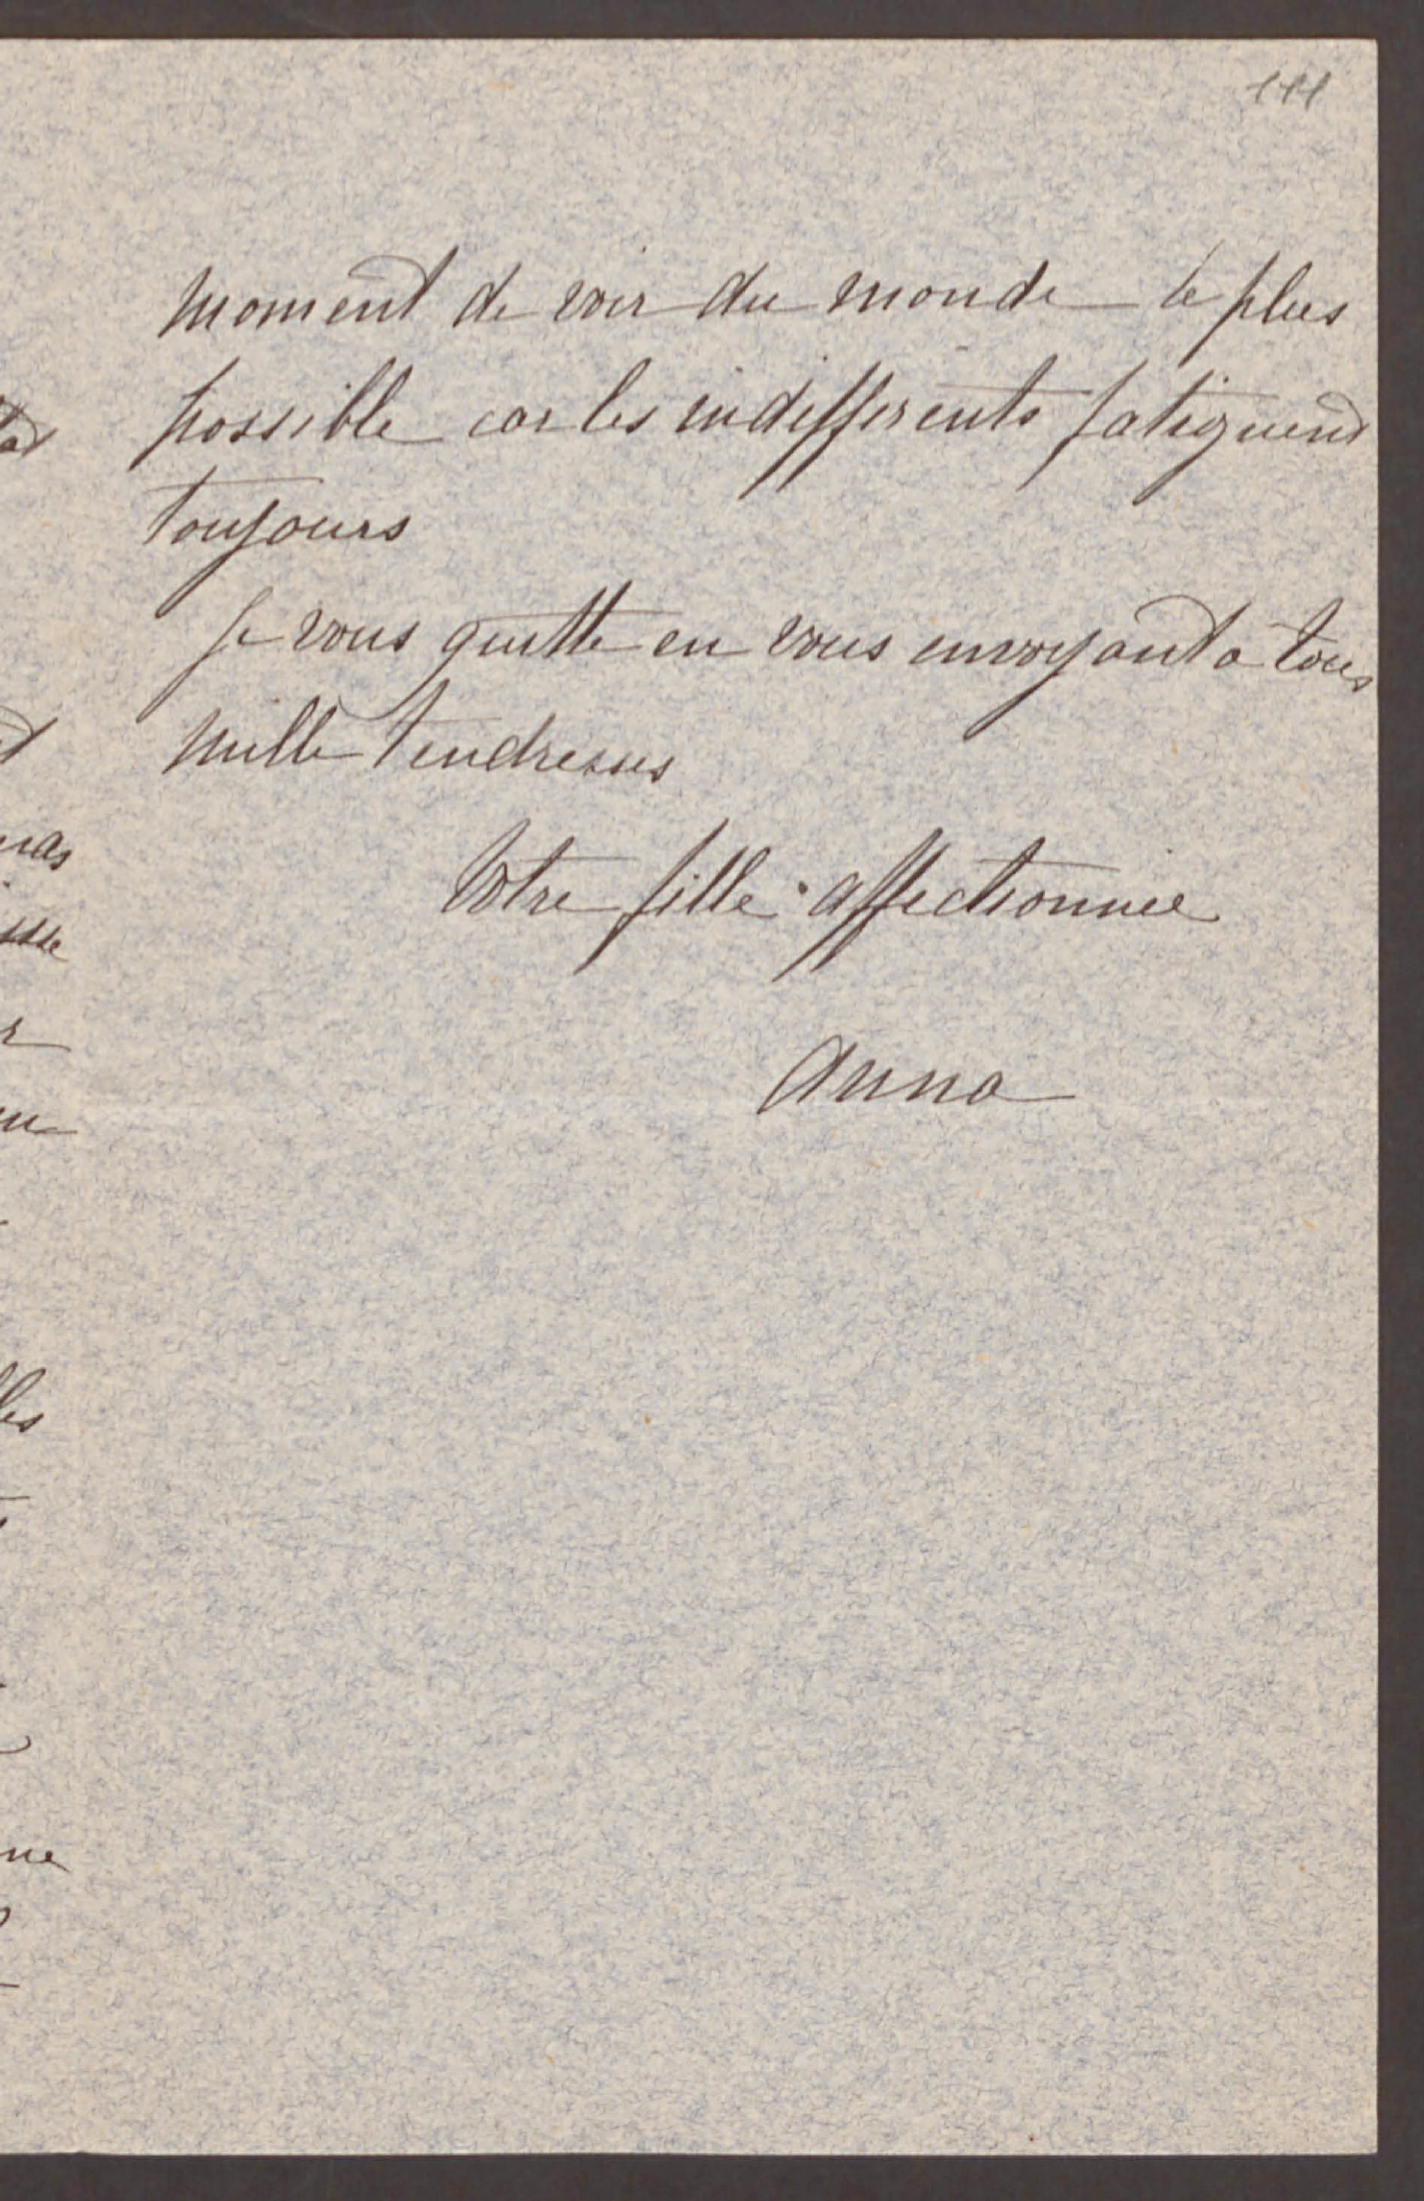 111
moment de voir du monde le plus
possible car les indifferents fatiguent
toujours
Je vous quitte en vous envoyant a tous
mille tendresses
Votre fille affectionnée
Anna